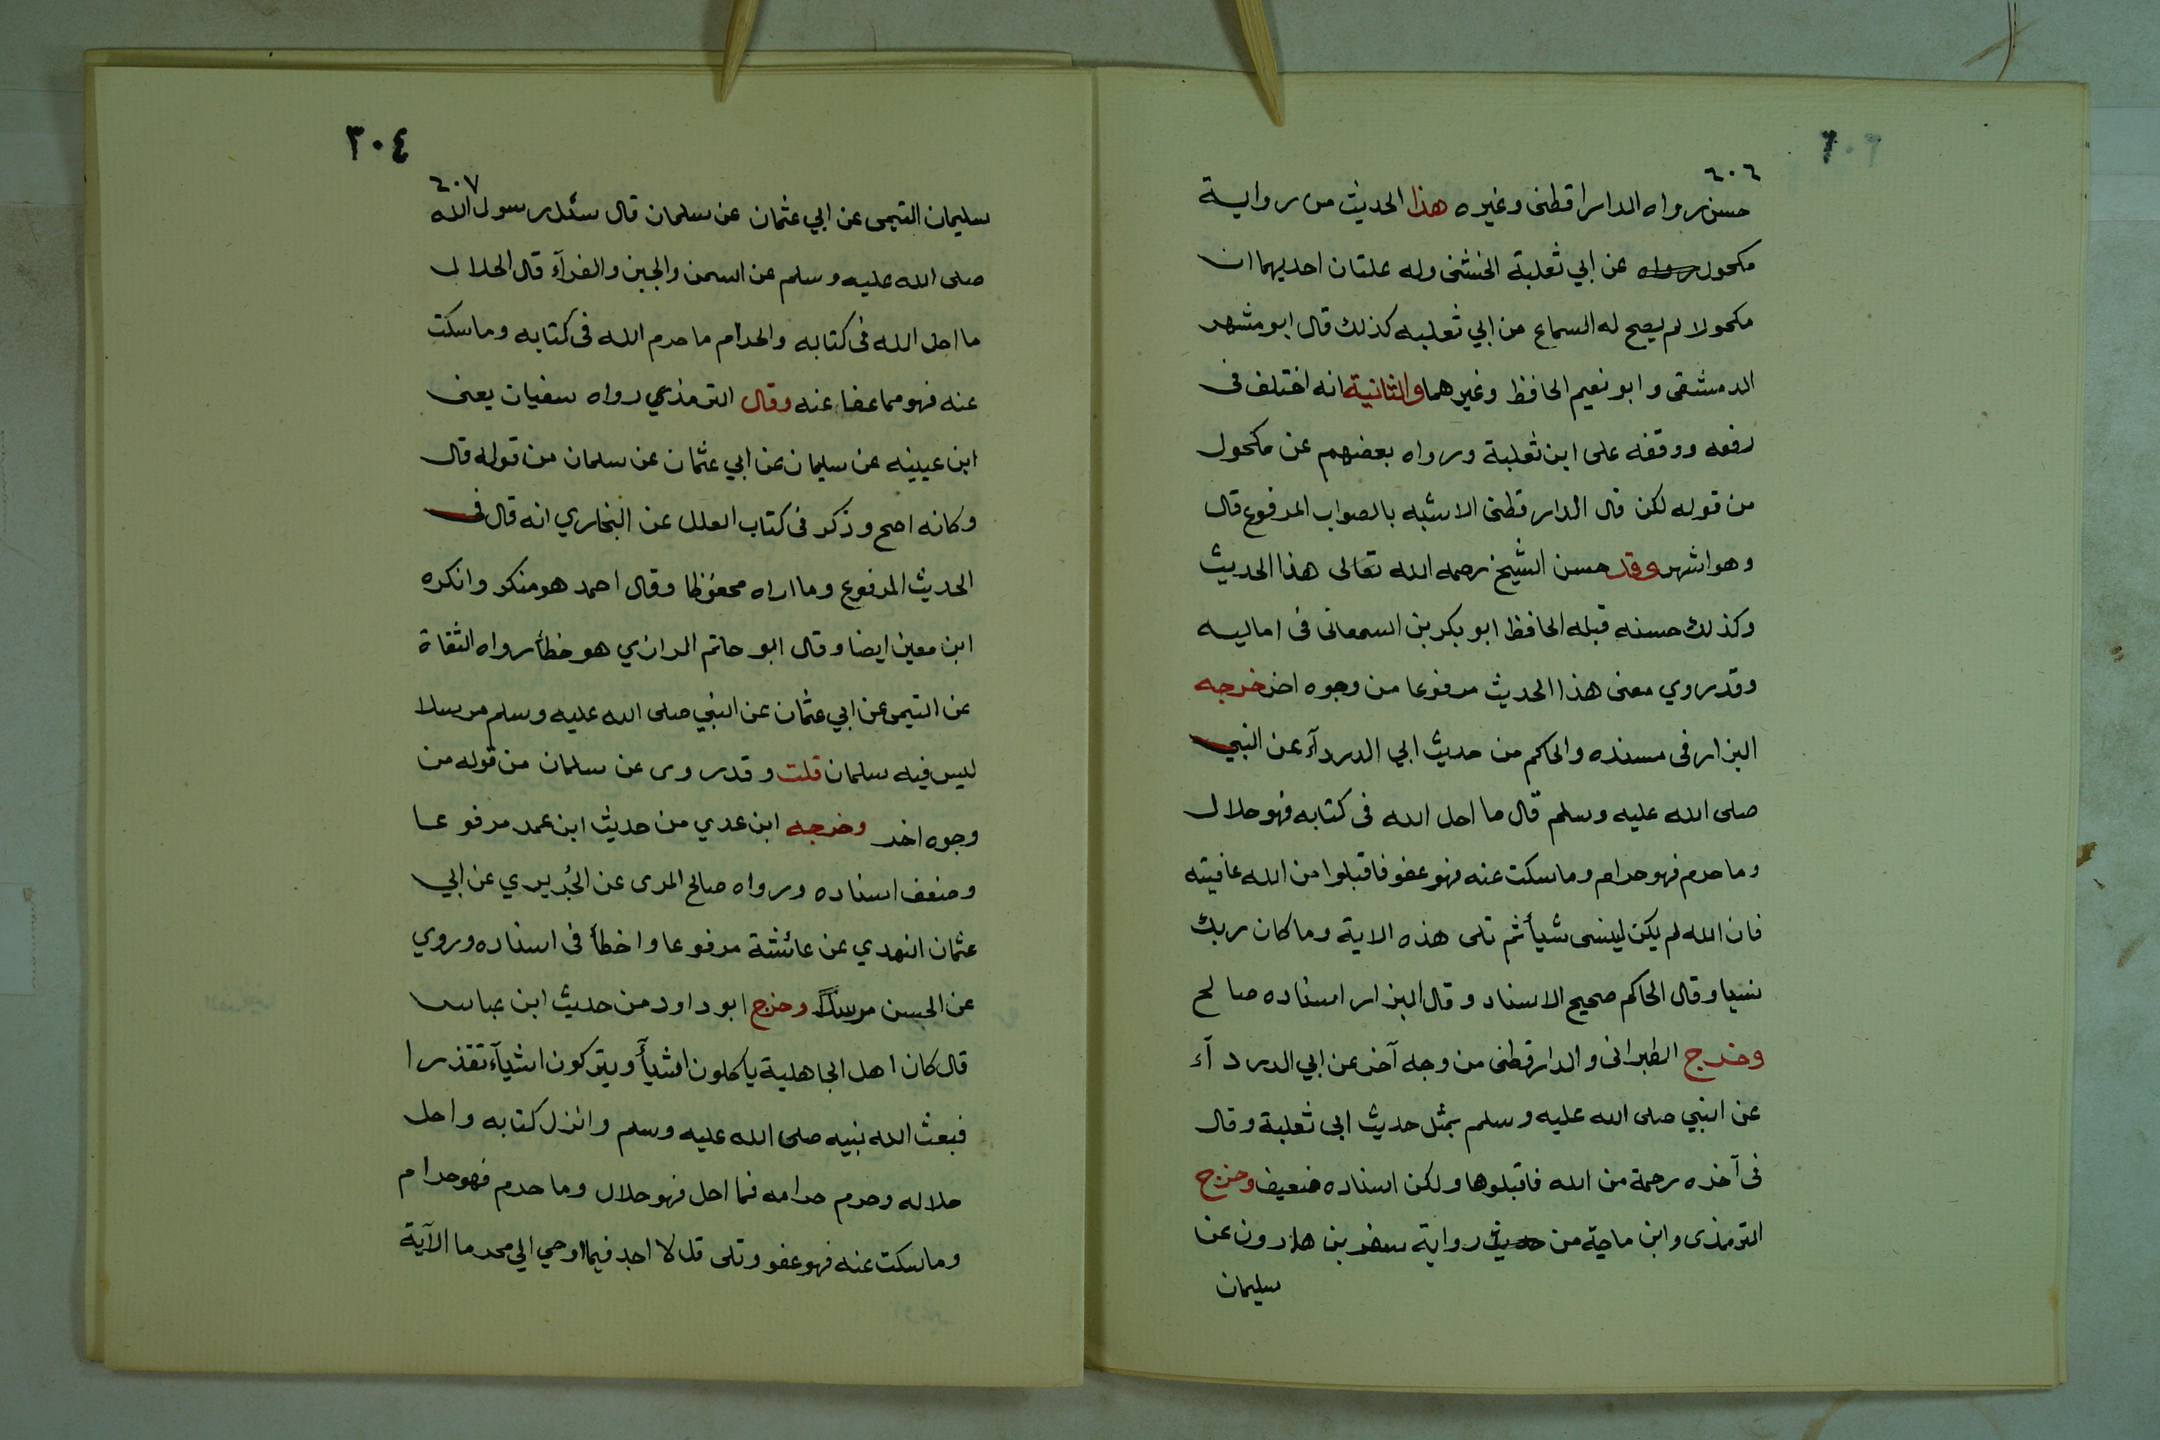 ٦٠٦
حسن رواه الدارا قطنى وغيره هذا الحديث من رواية
مكحول رواه عن ابي ثعلبة الخشنى وله علتان احديهما ان
مكحولا لم يصح له السماع من ابي ثعلبه كذلك قال ابو مشهر
الدمشقى وابو نعيم الحافظ وغيرهما والثانية انه اختلف فى
رفعه ووقفه على ابن ثعلبة ورواه بعضهم عن مكحول
من قوله لكن قال الدارقطنى الاشبه بالصواب المرفوع قال
وهو اشهر وقد حسن الشيخ رحمه الله تعالى هذا الحديث
وكذلك حسنه قبله الحافظ ابو بكر بن السمعانى فى اماليه
وقد روي معنى هذا الحديث مرفوعا من وجوه اخر خرجه
البزار فى مسنده والحاكم من حديث ابي الدردآء عن النبي
صلى الله عليه وسلم قال ما احل الله فى كتابه فهو حلال
وما حرم فهو حرام وما سكت عنه فهو عفو فاقبلوا من الله عافيته
فان الله لم يكن لينسى شيأ ثم تلى هذه الاية وما كان ربك
نسيا وقال الحاكم صحيح الاسناد وقال البزار اسناده صالح
وخرج الطبرانى والدارقطنى من وجه آخر عن ابي الدردآء
عن النبي صلى الله عليه وسلم بمثل حديث ابى ثعلبة وقال
فى آخره رحمة من الله فاقبلوها ولكن اسناده ضعيف وخرج
الترمذى وابن ماجة من حديث رواية سفر بن هارون عن
سليمان
٣٠٤
٦٠٧
سليمان التيمى عن ابي عثمان عن سلمان قال سئل رسول الله
صلى الله عليه وسلم عن السمن والجبن والفرآء قال الحلال
ما احل الله فى كتابه والحرام ما حرم الله فى كتابه وما سكت
عنه فهو مما عفا عنه وقال الترمذي رواه سفيان يعنى
ابن عيينه عن سليمان عن ابي عثمان عن سلمان من قوله قال
وكانه اصح وذكر فى كتاب العلل عن البخاري انه قال فى
الحديث المرفوع وما اراه محفوظا وقال احمد هو منكر وانكره
ابن معين ايضا وقال ابو حاتم الرازي هو خطأ رواه الثقاة
عن التيمى عن ابي عثمان عن النبي صلى الله عليه وسلم مرسلا
ليس فيه سلمان قلت وقد روى عن سلمان من قوله من
وجوه اخر وخرجه ابن عدي من حديث ابن عمر مرفوعا
وضعف اسناده ورواه صالح المرى عن الجُريري عن ابي
عثمان النهدي عن عائشة مرفوعا واخطأ فى اسناده وروي
عن الحسن مرسلاً وخرج ابو داود من حديث ابن عباس
قال كان اهل الجاهلية ياكلون اشيأ ويتركون اشيآء تقذرا
فبعث الله نبيه صلى الله عليه وسلم وانزل كتابه واحل
حلاله وحرم حرامه فما احل فهو حلال وما حرم فهو حرام
وما سكت عنه فهو عفو وتلى قل لا اجد فيما اوحي الي محرما الآية